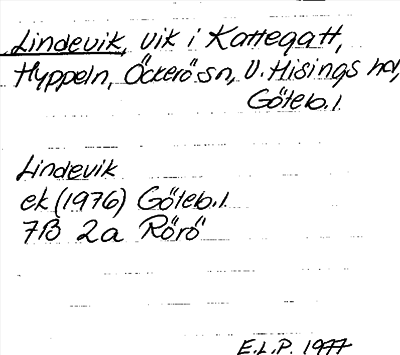 Lindevik, vik i Kattegatt,
Hyppeln, Öckerö sn, V. Hisings hd,
Göteb.l.
Lindevik
ek (1976) Göteb.l.
7B 2a Rörö
E.L.P. 1977